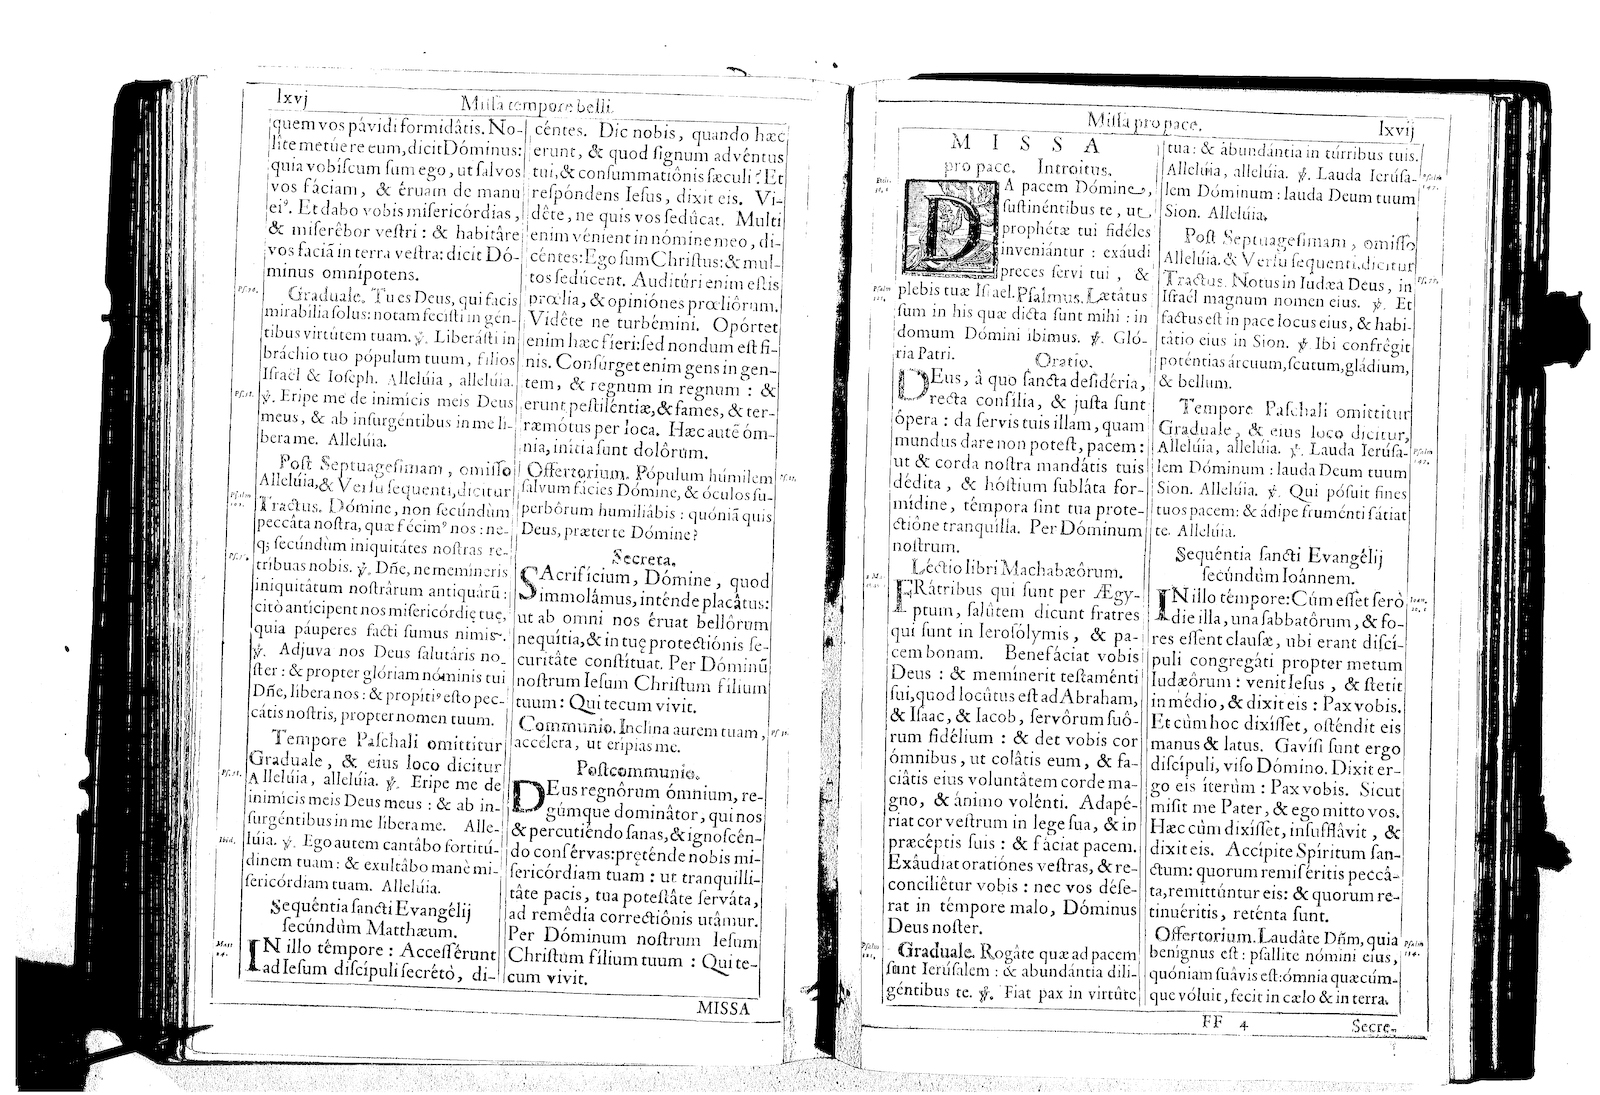 lxvj
Missa tempore belli.
quem vos pávidi formidâtis. No-
lite metúere eum, dicit Dóminus:
quia vobíscum sum ego, ut salvos
vos fáciam, & éruam de manu
eiꝰ. Et dabo vobis misericórdias,
& miserêbor vestri: & habitâre
vos faciã in terra vestra: dicit Dó-
minus omnípotens.
Graduale. Tu es Deus, qui facis
mirabília solus: notam fecisti in gén-
tibus virtútem tuam. ℣. Liberásti in
bráchio tuo pópulum tuum, filios
Israël & Ioseph. Allelúia, allelúia.
℣. Eripe me de inimícis meis Deus
meus, & ab insurgéntibus in me lí-
bera me. Allelúia.
Post Septuagesimam, omisso
Allelúia, & Versu sequenti, dicitur
Tractus. Dómine, non secúndùm
peccâta nostra, quæ fécimꝰ nos: ne-
q; secúndùm iniquitátes nostras re-
tríbuas nobis. ℣. Dñe, ne memíneris
iniquitâtum nostrárum antiquárũ:
citò antícipent nos misericórdię tuę,
quia páuperes facti sumus nimis.
℣. Adjuva nos Deus salutáris no-
ster: & propter glóriam nóminis tui
Dñe, líbera nos: & propítiꝰ esto pec-
cátis nostris, propter nomen tuum.
Tempore Paschali omittitur
Graduale, & eius loco dicitur
Allelúia, allelúia. ℣. Eripe me de
inimícis meis Deus meus: & ab in-
surgéntibus in me líbera me. Alle-
lúia. ℣. Ego autem cantábo fortitú-
dinem tuam: & exultábo manè mi-
sericórdiam tuam. Allelúia.
Sequéntia sancti Evangélij
secúndùm Matthæum.
IN illo témpore: Accessérunt
ad Iesum discípuli secrétò, di-
céntes. Dic nobis, quando hæc
erunt, & quod signum advéntus
tui, & consummatiônis sæculi? Et
respóndens Iesus, dixit eis. Vi-
dête, ne quis vos sedûcat. Multi
enim vénient in nómine meo, di-
céntes: Ego sum Christus: & mul-
tos sedúcent. Auditúri enim estis
prœlia, & opiniónes prœliôrum.
Vidête ne turbémini. Opórtet
enim hæc fíeri: sed nondum est fi-
nis. Consúrget enim gens in gen-
tem, & regnum in regnum: &
erunt pestiléntiæ, & fames, & ter-
ræmótus per loca. Hæc autẽ óm-
nia, inítia sunt dolôrum.
Offertorium. Pópulum húmilem
salvum fácies Dómine, & óculos su-
perbôrum humiliábis: quóniã quis
Deus, præter te Dómine?
Secreta.
SAcrifícium, Dómine, quod
immolámus, inténde placâtus:
ut ab omni nos éruat bellôrum
nequítia, & in tuę protectiónis se-
curitâte constítuat. Per Dóminũ
nostrum Iesum Christum fílium
tuum: Qui tecum vivit.
Communio. Inclina aurem tuam,
accélera, ut erípias me.
Postcommunio.
DEus regnôrum ómnium, re-
gúmque dominâtor, qui nos
& percutiéndo sanas, & ignoscén-
do consérvas: pręténde nobis mi-
sericórdiam tuam: ut tranquilli-
tâte pacis, tua potestâte serváta,
ad remédia correctiônis utâmur.
Per Dóminum nostrum Iesum
Christum fílium tuum: Qui te-
cum vivit.
MISSA
Missa pro pace.
lxvij
MISSA
pro pace. Introitus.
DA pacem Dómine,
sustinéntibus te, ut
prophétæ tui fidéles
inveniántur: exáudi
preces servi tui, &
plebis tuæ Israel. Psalmus. Lætâtus
sum in his quæ dicta sunt mihi: in
domum Dómini ibimus. ℣. Gló-
ria Patri.
Oratio.
DEus, à quo sancta desidéria,
recta consília, & justa sunt
ópera: da servis tuis illam, quam
mundus dare non potest, pacem:
ut & corda nostra mandátis tuis
dédita, & hóstium subláta for-
mídine, témpora sint tua prote-
ctiône tranquilla. Per Dóminum
nostrum.
Léctio libri Machabæôrum.
FRátribus qui sunt per Ægy-
ptum, salútem dicunt fratres
qui sunt in Ierosólymis, & pa-
cem bonam. Benefáciat vobis
Deus: & memínerit testaménti
sui, quod locûtus est ad Abraham,
& Isaac, & Iacob, servôrum suô-
rum fidélium: & det vobis cor
ómnibus, ut colâtis eum, & fa-
ciâtis eius voluntâtem corde ma-
gno, & ánimo volénti. Adapé-
riat cor vestrum in lege sua, & in
præcéptis suis: & fáciat pacem.
Exâudiat oratiónes vestras, & re-
conciliêtur vobis: nec vos déſe-
rat in témpore malo, Dóminus
Deus noster.
Graduale. Rogâte quæ ad pacem
sunt Ierúsalem: & abundántia dili-
géntibus te. ℣. Fiat pax in virtúte
tua: & abundántia in túrribus tuis.
Allelúia, allelúia. ℣. Lauda Ierúsa-
lem Dóminum: lauda Deum tuum
Sion. Allelúia.
Post Septuagesimam, omisso
Allelúia, & Versu sequenti, dicitur
Tractus. Notus in Iudæa Deus, in
Israël magnum nomen eius. ℣. Et
factus est in pace locus eius, & habi-
tátio eius in Sion. ℣. Ibi confrégit
poténtias árcuum, scutum, gládium,
& bellum.
Tempore Paschali omittitur
Graduale, & eius loco dicitur,
Allelúia, allelúia. ℣. Lauda Ierúsa-
lem Dóminum: lauda Deum tuum
Sion. Allelúia. ℣. Qui pósuit fines
tuos pacem: & ádipe fruménti sátiat
te. Allelúia.
Sequéntia sancti Evangélij
secúndùm Ioánnem.
IN illo témpore: Cùm esset serò
die illa, una sabbatôrum, & fo-
res essent clausæ, ubi erant discí-
puli congregáti propter metum
Iudæôrum: venit Iesus, & stetit
in médio, & dixit eis: Pax vobis.
Et cùm hoc dixísset, osténdit eis
manus & latus. Gavísi sunt ergo
discípuli, viso Dómino. Dixit er-
go eis íterùm: Pax vobis. Sicut
misit me Pater, & ego mitto vos.
Hæc cùm dixísset, insufflávit, &
dixit eis. Accípite Spíritum san-
ctum: quorum remiséritis peccâ-
ta, remittúntur eis: & quorum re-
tinuéritis, reténta sunt.
Offertorium. Laudâte Dñm, quia
benignus est: psállite nómini eius,
quóniam suâvis est: ómnia quæcúm-
que vóluit, fecit in cælo & in terra.
FF 4
Secre-